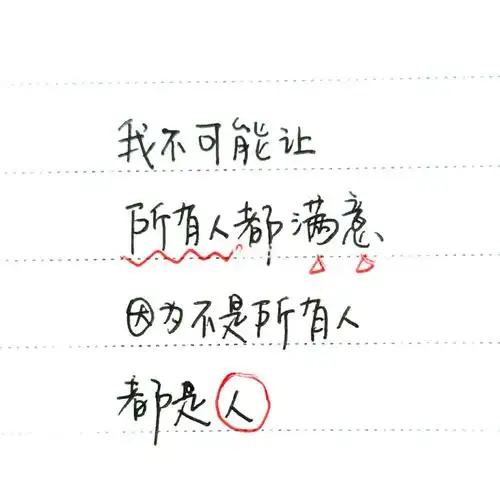 我不可能让
所有人都满意
因为不是所有人
都是人